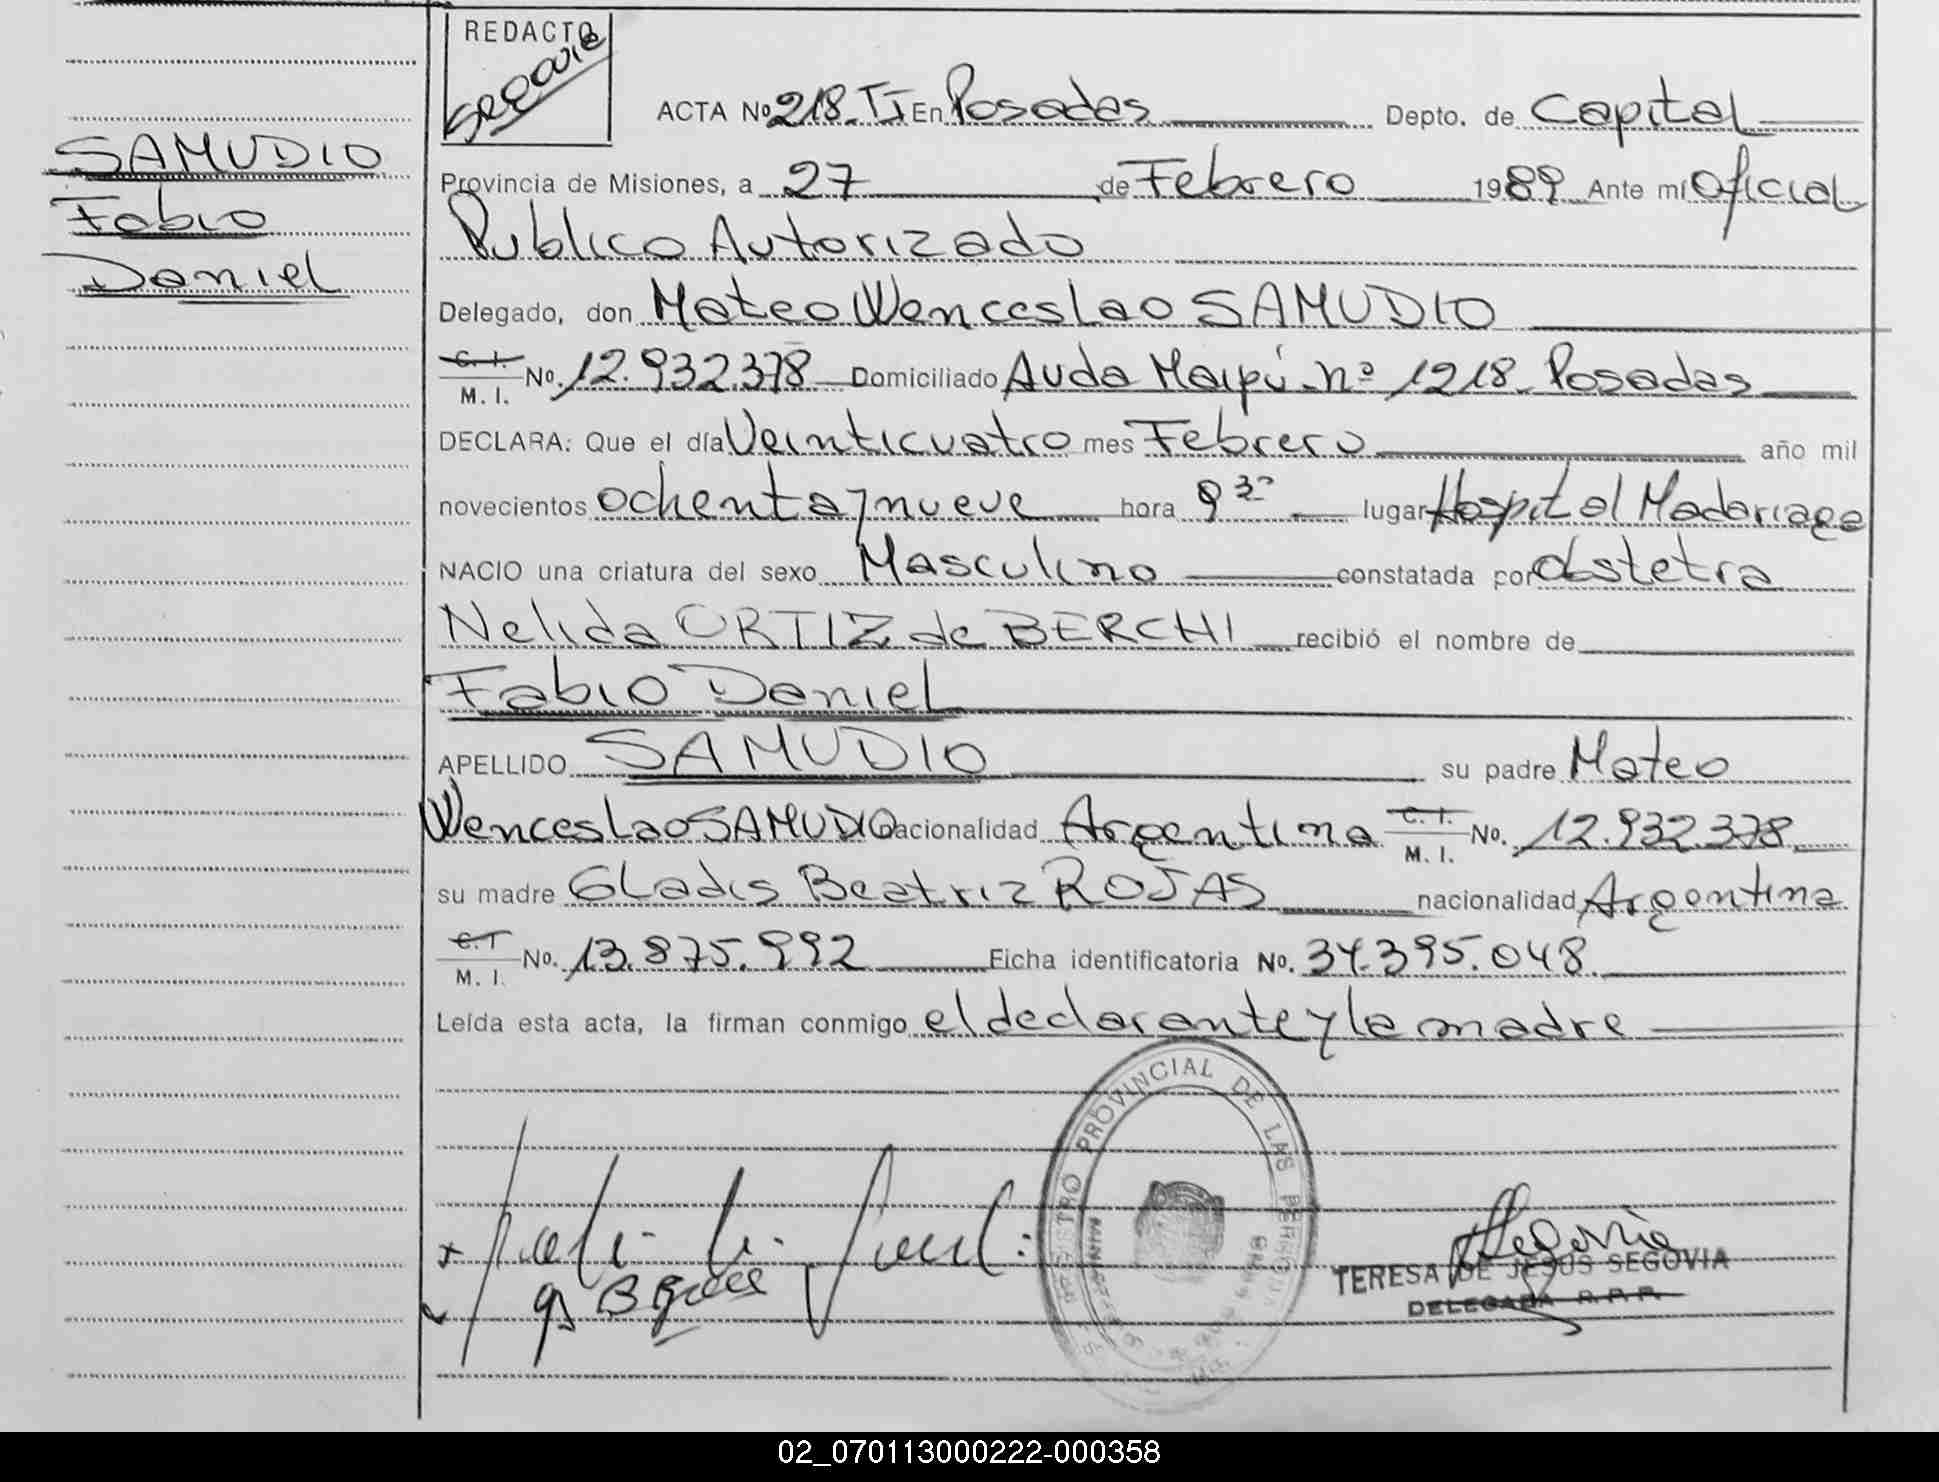 REDACTO
Segovia
ACTA Nº 218. TI En Posadas Depto. de Capital
SAMUDIO
Fabio
Daniel
Provincia de Misiones, a 27 de Febrero 1989 Ante mí Oficial
Publico Autorizado
Delegado, don Mateo Wenceslao SAMUDIO
C. I. M. I. Nº. 12.932.378 Domiciliado Avda Maipú nº 1218 Posadas
DECLARA: Que el día Veinticuatro mes Febrero año mil
novecientos ochenta y nueve hora 9 30 lugar Hospital Madariaga
NACIO una criatura del sexo Masculino constatada por obstetra
Nelida ORTIZ de BERCHI recibió el nombre de
Fabio Daniel
APELLIDO SAMUDIO su padre Mateo
Wenceslao SAMUDIO nacionalidad Argentina C. I. M. I. Nº. 12.932.378
su madre Gladis Beatriz ROJAS nacionalidad Argentina
C. I. M. I. Nº. 13.875.992 Ficha identificatoria Nº. 34.395.048
Leída esta acta, la firman conmigo el declarante y la madre
REGISTRO PROVINCIAL DE LAS PERSONAS
MISIONES
Segovia
TERESA DE JESUS SEGOVIA
DELEGADA R.P.P.
02_070113000222-000358